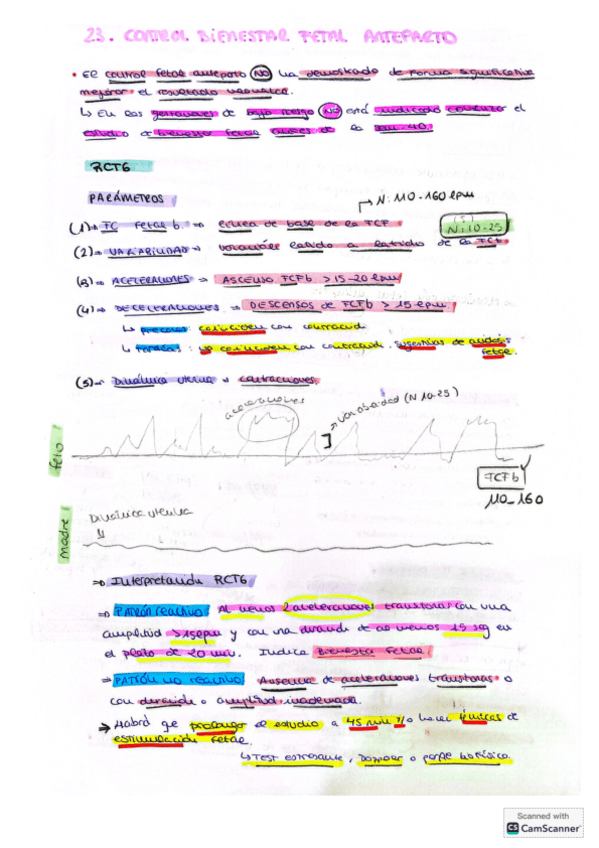 23. CONTROL BIENESTAR FETAL ANTEPARTO
• El control fetal anteparto NO ha demostrado de forma significativa
mejorar el resultado neonatal.
↳ En las gestaciones de bajo riesgo NO está indicado comenzar el
estudio de bienestar fetal antes de la sem. 40.
RCTG
PARÁMETROS
N: 110-160 lpm
(1) → FC Fetal b. → línea de base de la FCF
(5)
N: 10-25
(2) → VARIABILIDAD → latido a latido de la FCFb.
(3) → ACELERACIONES → ASCENSO FCFb > 15-20 lpm
(4) → DECELERACIONES → DESCENSOS de FCFb > 15 lpm.
↳ precoces: coinciden con contracción
↳ tardías: no coinciden con contracción. sugestivas de acidosis
fetal.
(5) → Dinámica uterina → contracciones
aceleraciones
→ Variabilidad (N 10-25)
feto
FCFb
110-160
Dinámica uterina
madre
⇒ Interpretación RCTG
⇒ PATRÓN reactivo: Al menos 2 aceleraciones transitorias con una
amplitud > 15 lpm y con una duración de al menos 15 sg en
el plazo de 20 min. Indica Bienestar Fetal
⇒ PATRÓN no reactivo: Ausencia de aceleraciones transitorias o
con duración o amplitud inadecuada.
→ Habrá que prolongar el estudio a 45 min y/o hacer técnicas de
estimulación fetal.
↳ TEST estresante, Doppler o perfil biofísico.
Scanned with
CS CamScanner